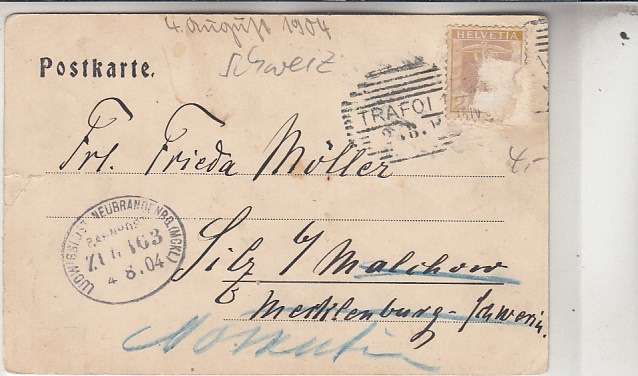 4. August 1904
Schweiz
Postkarte.
HELVETIA
2
TRAFOI
4.-
Frl. Frieda Möller
LUDWIGSLUST-NEUBRANDENBG.(MCKL)
BAHNPOST
ZUG 163
4 8.04
Silz b/ Malchow
Mecklenburg-Schwerin.